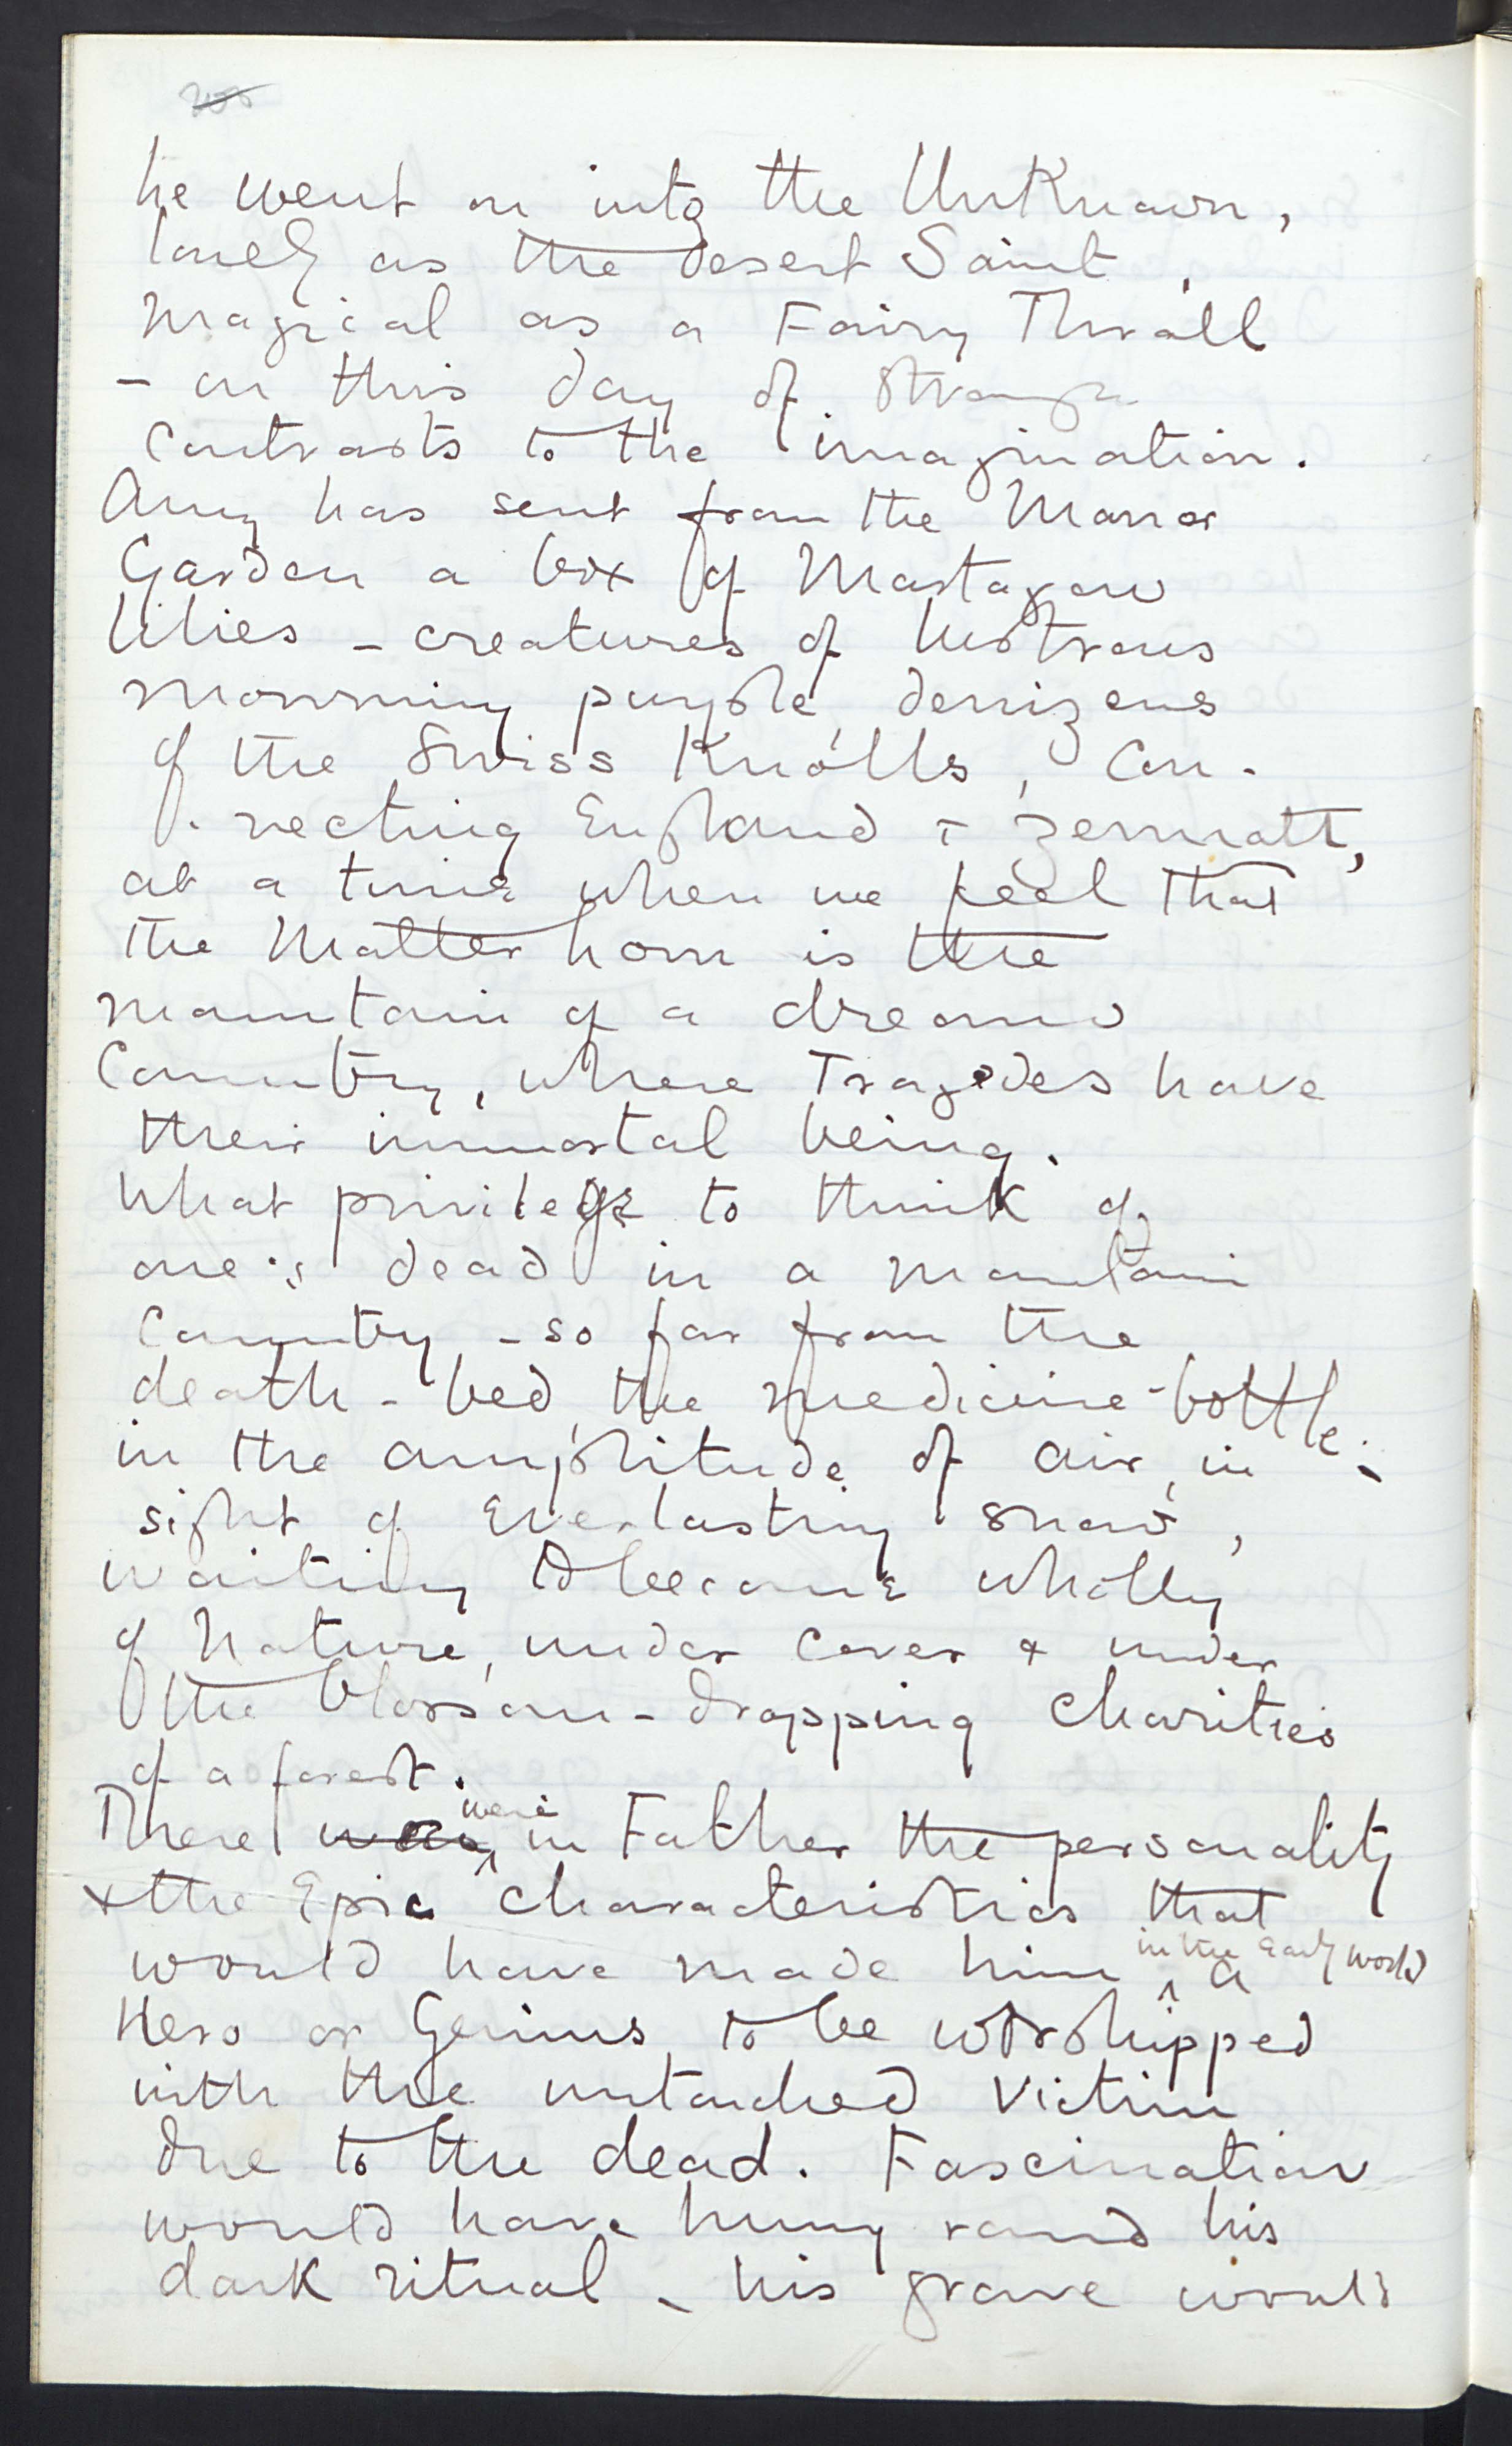 he went on into the Unknown,
lonely as the desert Saint,
magical as a Fairy Thrall
- on this day of strange
contrasts to the imagination.
Amy has sent from the Manor
Garden a box of Martagon
lilies - creatures of lustrous
mourning purple, denizens
of the Swiss Knolls, con-
-necting England & Zermatt,
at a time when we feel that
the Matterhorn is the
mountain of a dream
country, where Tragedies have
their immortal being.
What privilege to think of
one's dead in a mountain
country - so far from the
death-bed, the medicine-bottle -
in the amplitude of air, in
sight of Everlasting snow,
waiting to become wholly
of Nature, under cover & under
the blossom-dropping charities
of a forest.
There was were in Father the personality
& the Epic characteristics that
would have made him in the Early World a
Hero or Genius to be worshipped
with the untouched victim
due to the dead. Fascination
would have hung round his
dark ritual - his grave would